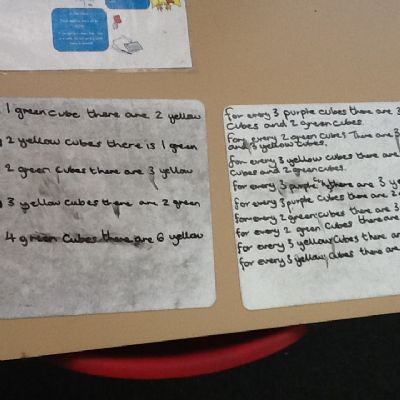 1 green cube there are 2 yellow
2 yellow cubes there is 1 green
2 green cubes there are 3 yellow
3 yellow cubes there are 2 green
4 green cubes there are 6 yellow
for every 3 purple cubes there are 3
cubes and 2 green cubes.
for every 2 green cubes there are 3
and 3 yellow cubes.
for every 3 yellow cubes there are
cubes and 2 green cubes.
for every 3 purple there are 3 ye
for every 3 purple cubes there are
for every 2 green cubes there are 3
for every 2 green cubes there are
for every 3 yellow cubes there are
for every 3 yellow cubes there are